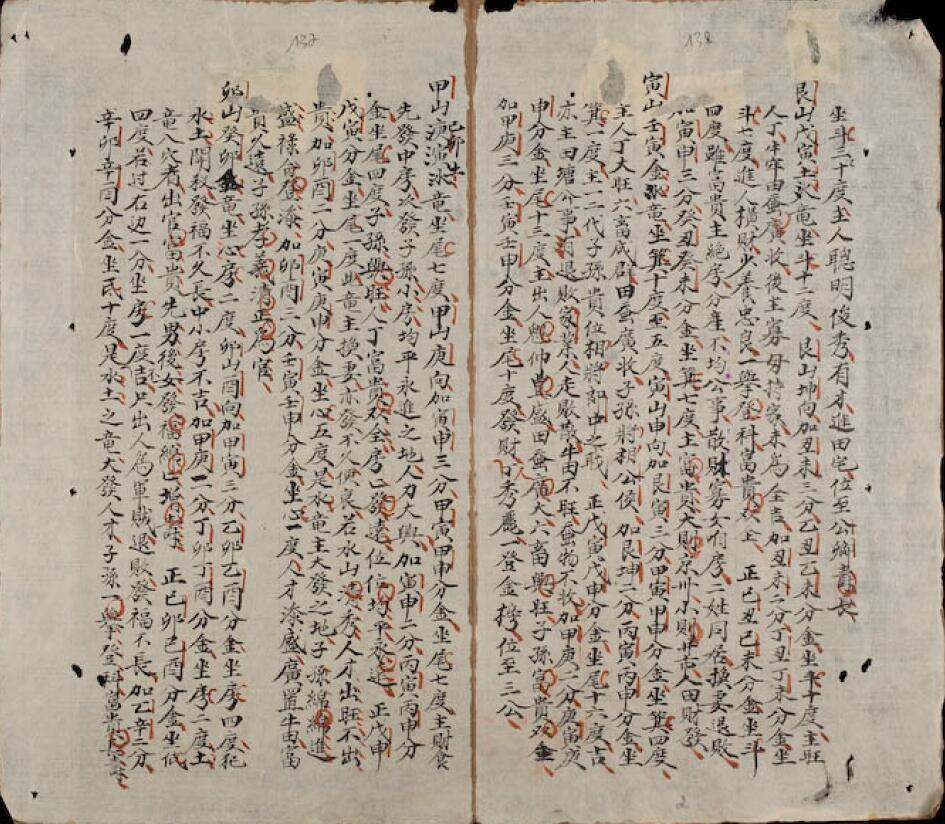 138
坐斗二十度主人聰明俊秀有才進田宅位至公卿壽長
艮山戊寅土氺竜坐斗十二度艮山坤向加丑未三分乙丑乙未分金坐斗十度主旺
人丁牛牢田蚕廣收後主寡母持家未為全吉加丑未二分丁丑丁未分金坐
斗七度進人橫財少養忠良一舉登科富貴双全正己丑己未分金坐斗
四度雖富貴主絕房分產不均公事散財寡女有房二姓同居換妻退敗
加寅申三分癸丑癸未分金坐箕七度主富貴大則京州小則廿市人田財發
寅山壬寅金氺竜坐箕十度至五度寅山申向加艮寅三分甲寅甲申分金坐箕四度
主人丁大旺六畜成群田蚕廣收子孫將相公侯加艮坤二分丙寅丙申分金坐
箕一度主二代子孫貴位相將郎中之職正戊寅戊申分金坐尾十六度吉
亦主田塘小事有退敗家業人走敗散牛田不旺蚕物不收加甲庚二分庚寅庚
申分金坐尾十三度主出人魁伸豊盛田蚕廣大六畜興旺子孫富貴双全
加甲庚三分壬寅壬申分金坐尾十度發財丁秀麗一登金榜位至三公
137
甲山演氺竜坐尾七度甲山庚向加寅申三分甲寅甲申分金坐尾七度主財食
先發中房次發子孫小房均平永進之地人力大興加寅申二分丙寅丙申分
金坐尾四度子孫興旺人丁富貴双全房亡發達位位均平永遠正戊申
戊寅分金坐尾一度此竜主換妻亦發不久便良若水山秀人才出旺不出
貴加卯酉二分庚寅庚申分金坐心五度是水竜主大發之地子孫綿綿進
盛祿位登添加卯酉三分壬寅壬申分金坐心一度人才添盛廣置牛田富
貴久遠子孫孝義清正為官
卯山癸卯金竜坐心房二度卯山酉向加甲寅三分乙卯乙酉分金坐房四度犯
水土開殺發福不久長中小房不吉加甲庚一分丁卯丁酉分金坐房二度土
竜入穴者出官富貴先男後女發福綿亡增壽正己卯己酉分金坐低
四度若过右边一分坐房一度吉尸出人為軍賊退敗發福不長加乙辛二分
辛卯辛酉分金坐氐十度是水土之竜大發人才子孫一舉登科富貴